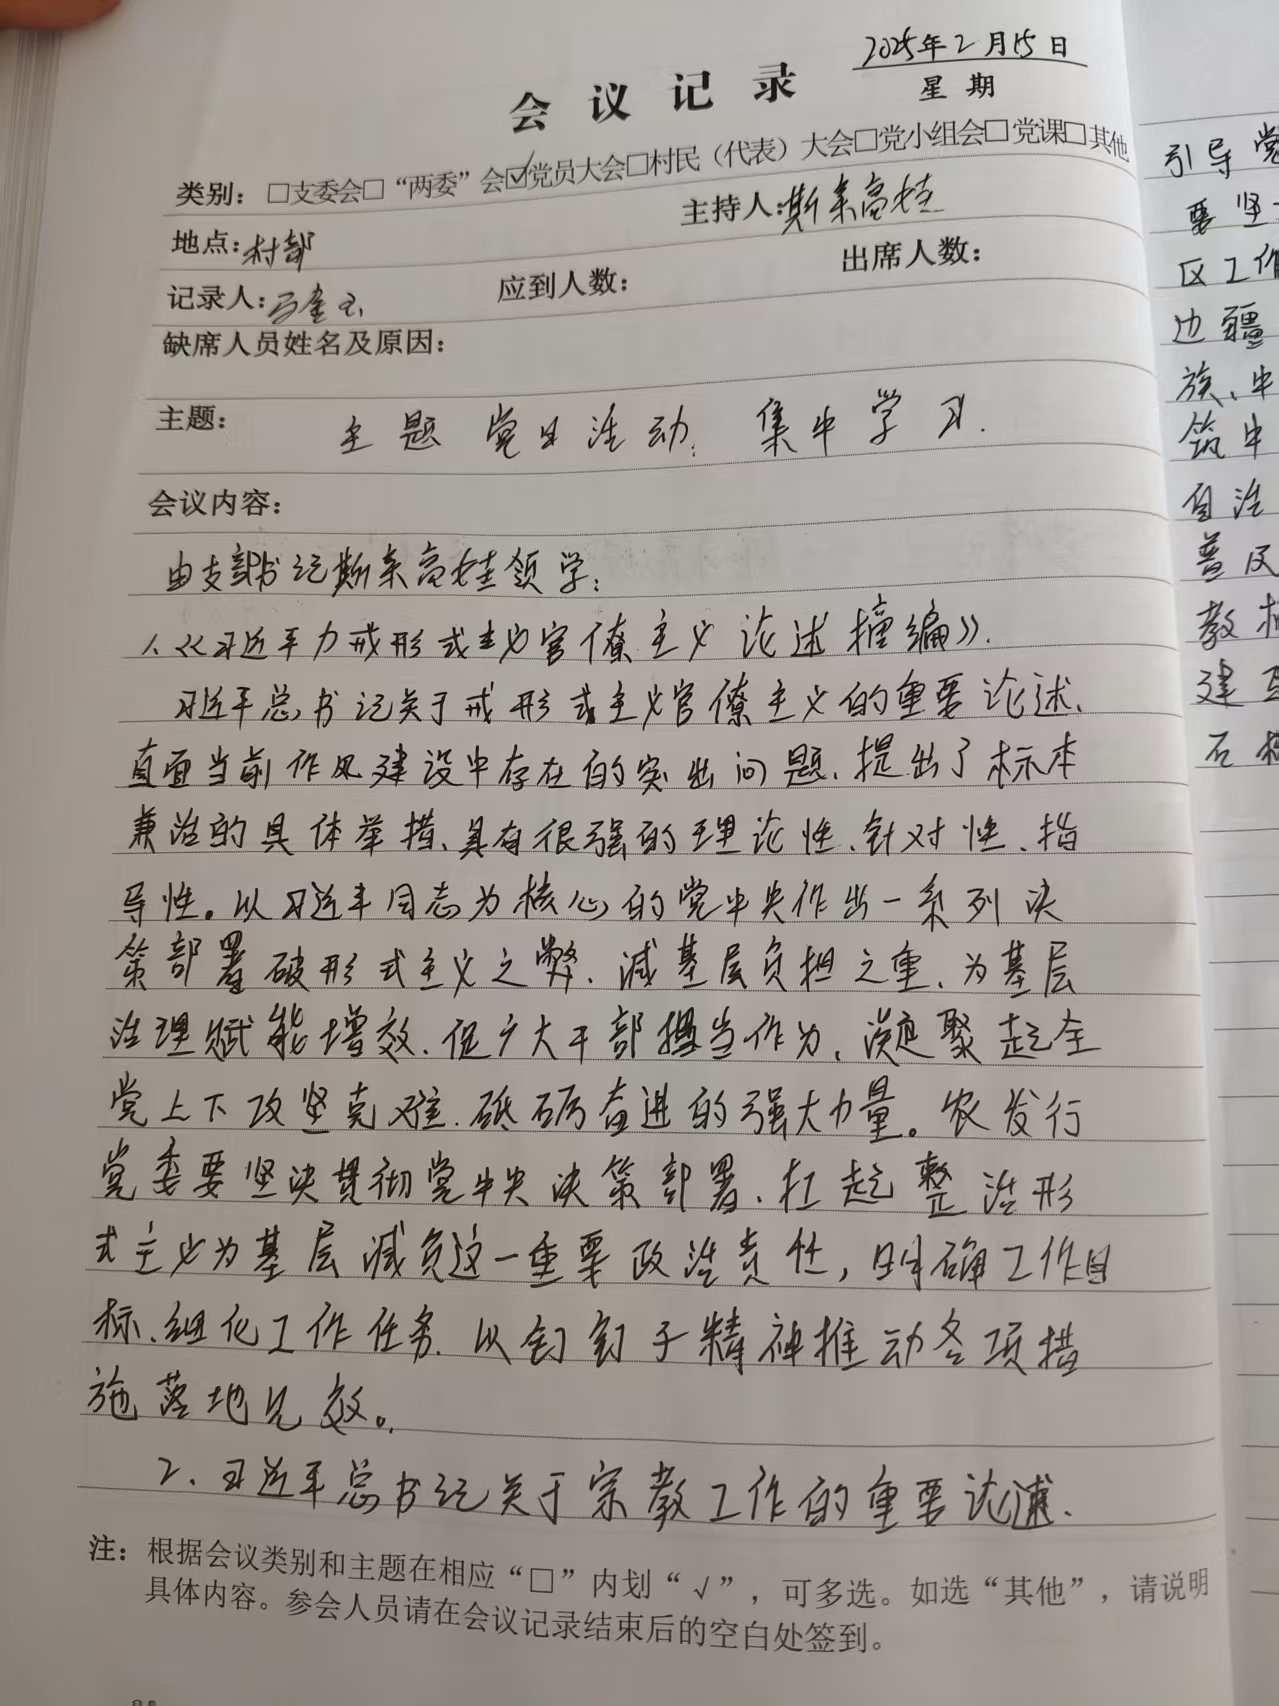 2025年2月15日
会议记录
星期
类别：□支委会□“两委”会☑党员大会□村民（代表）大会□党小组会□党课□其他
地点：村部 主持人：斯琴高娃
记录人： 应到人数： 出席人数：
缺席人员姓名及原因：
主题： 主题党日活动、集中学习.
会议内容：
由支部书记斯琴高娃领学：
1、《习近平力戒形式主义官僚主义论述摘编》.
习近平总书记关于戒形式主义官僚主义的重要论述、
直面当前作风建设中存在的突出问题、提出了标本
兼治的具体举措、具有很强的理论性、针对性、指
导性。以习近平同志为核心的党中央作出一系列决
策部署破形式主义之弊、减基层负担之重、为基层
治理赋能增效、促广大干部担当作为、凝聚起全
党上下攻坚克难、砥砺奋进的强大力量。农发行
党委要坚决贯彻党中央决策部署、扛起整治形
式主义为基层减负这一重要政治责任，明确工作目
标、细化工作任务、以钉钉子精神推动各项措
施落地见效。
2、习近平总书记关于宗教工作的重要论述.
注：根据会议类别和主题在相应“□”内划“√”，可多选。如选“其他”，请说明
具体内容。参会人员请在会议记录结束后的空白处签到。
引导党
要坚
区工作
边疆
族、中
筑中
自治
普及
教
建
石